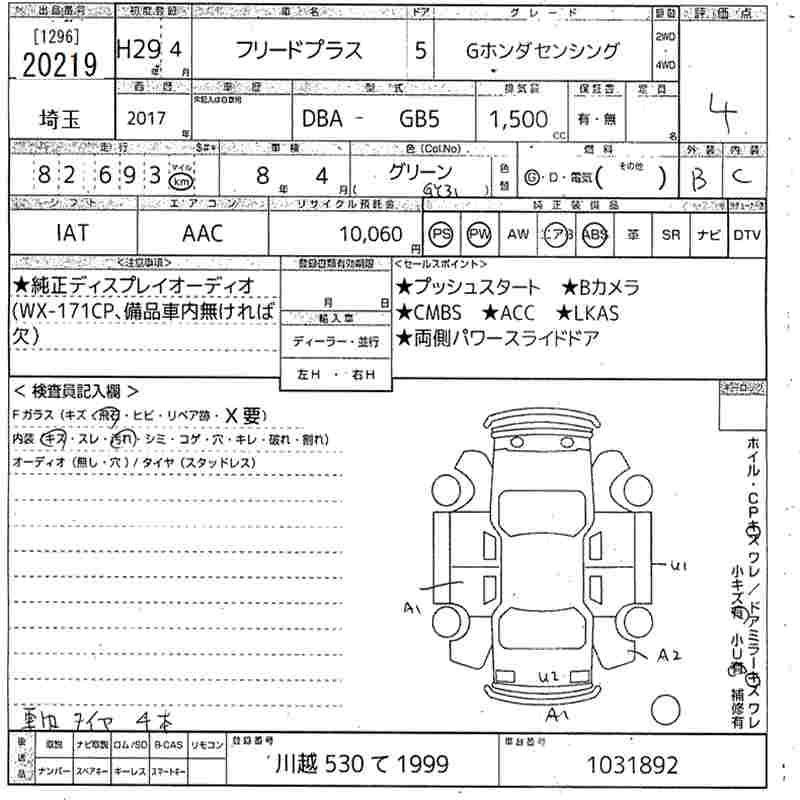 出品番号 初度登録 車名 ドア グレード 駆動 評価点
[1296]
20219 H29年 4月 フリードプラス 5 Gホンダセンシング 2WD・4WD 4
西暦 車歴 型式 排気量 保証書 定員
埼玉 2017年 未記入は自家用 DBA - GB5 1,500cc 有・無 名
走行 $#* 車検 色(Col.No) 燃料 外装 内装
82693 マイル km 8年 4月 グリーン (GY31) 色替 G・D・電気( その他 ) B C
シフト エアコン リサイクル預託金 純正装備品
IAT AAC 10,060円 PS PW AW エアB ABS 革 SR ナビ DTV
<注意事項> 登録書類有効期限 <セールスポイント>
★純正ディスプレイオーディオ
(WX-171CP、備品車内無ければ
欠)
月 日
輸入車
ディーラー・並行
左H ・ 右H
★プッシュスタート ★Bカメラ
★CMBS ★ACC ★LKAS
★両側パワースライドドア
< 検査員記入欄 >
Fガラス(キズ・飛石・ヒビ・リペア跡・X要)
内装(キズ・スレ・汚れ・シミ・コゲ・穴・キレ・破れ・割れ)
オーディオ(無し・穴)/タイヤ(スタッドレス)
A1
U1
A2
U2
A1
ホイル・CPキズワレ/ドアミラーキズワレ
小キズ有 小U有 補修有
タイヤ 4本
後送品 車検 ナビ取説 ロム/SD B-CAS リモコン 登録番号 車台番号
ナンバー スペアキー キーレス スマートキー 川越 530 て 1999 1031892